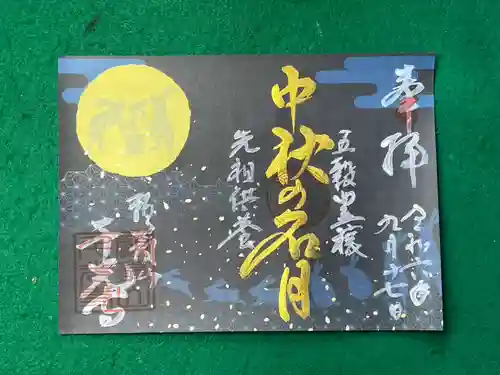 奉拝
令和六年
九月十七日
五穀豊穣
中秋の名月
先祖供養